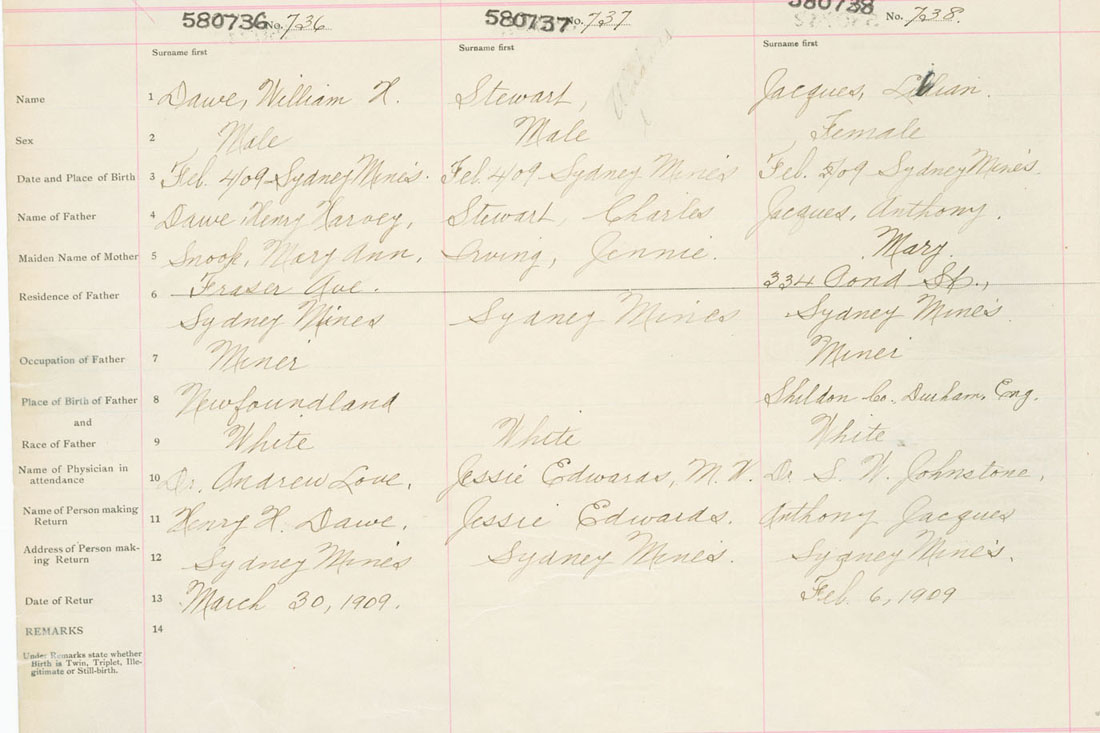 580736 No. 736 580737 No. 737 580738 No. 738.
Surname first Surname first Surname first
Name 1 Dawe, William H. Stewart, Jacques, Lilian.
Sex 2 Male Male Female
Date and Place of Birth 3 Feb. 4/09 Sydney Mines. Feb. 4/09 Sydney Mines Feb. 5/09 Sydney Mines.
Name of Father 4 Dawe, Henry Harvey, Stewart, Charles Jacques, Anthony.
Maiden Name of Mother 5 Snook, Mary Ann, Irving, Jennie. Mary.
Fraser Ave. 334 Pond St.,
Residence of Father 6 Sydney Mines Sydney Mines Sydney Mines.
Occupation of Father 7 Miner Miner
Place of Birth of Father 8 Newfoundland Shildon Co. Durham, Eng.
and
Race of Father 9 White White White
Name of Physician in
attendance 10 Dr. Andrew Love, Jessie Edwards, M.W. Dr. S. W. Johnstone,
Name of Person making
Return 11 Henry H. Dawe, Jessie Edwards. Anthony Jacques
Address of Person mak-
ing Return 12 Sydney Mines Sydney Mines. Sydney Mines.
Date of Retur 13 March 30, 1909. Feb. 6, 1909
REMARKS 14
Under Remarks state whether
Birth is Twin, Triplet, Ille-
gitimate or Still-birth.